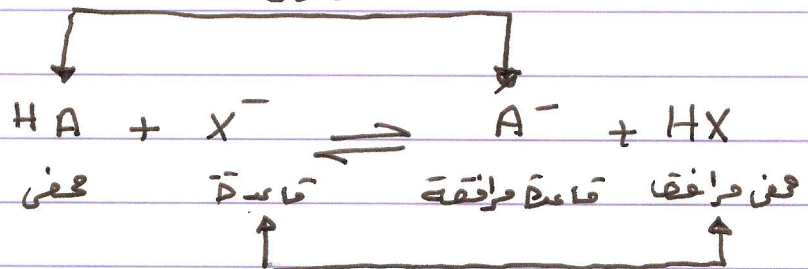 HA + X⁻ ⇌ A⁻ + HX
حمض قاعدة قاعدة مرافقة حمض مرافق